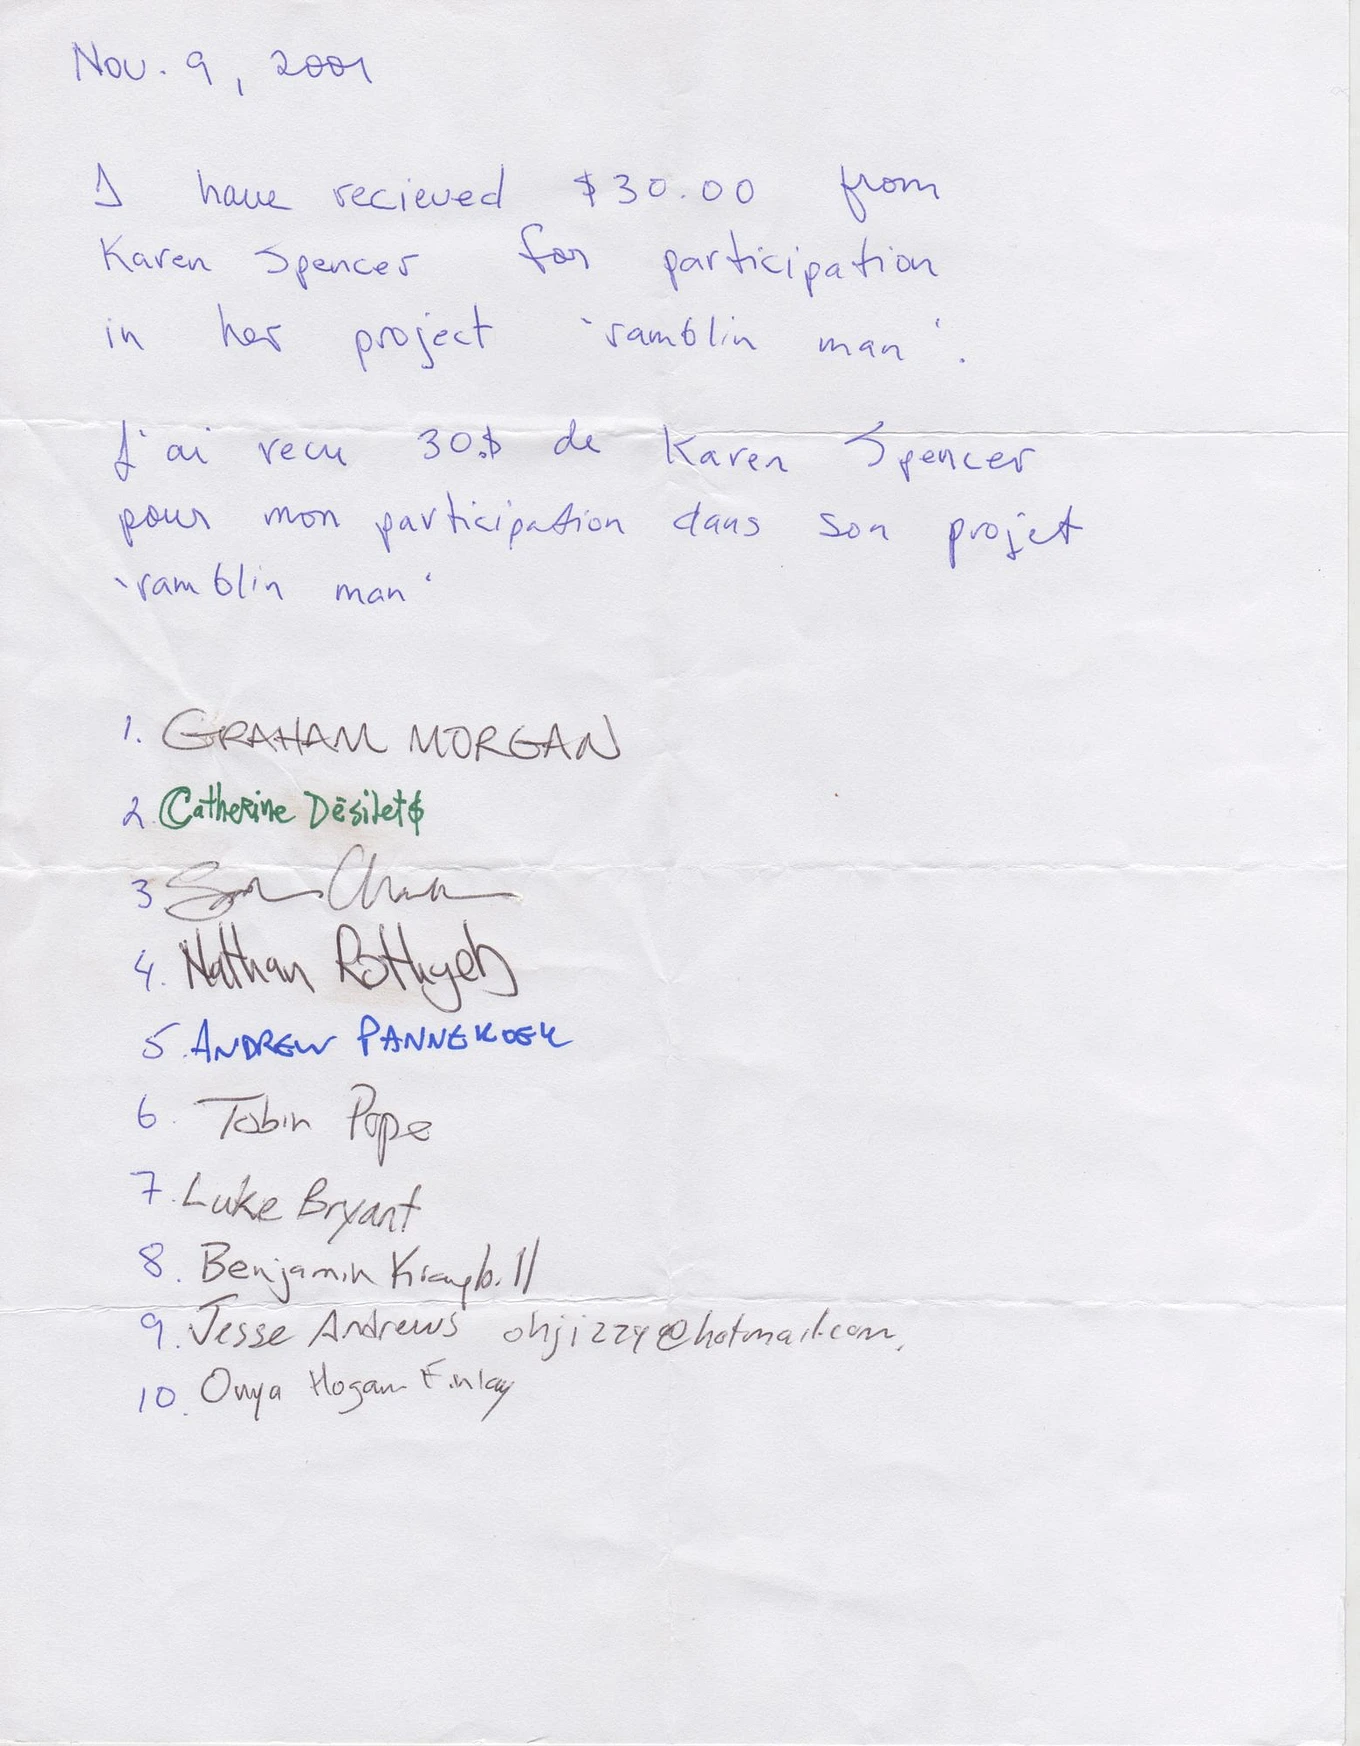 Nov. 9, 2001
I have recieved $30.00 from
Karen Spencer for participation
in her project 'ramblin man'.
J'ai recu 30.$ de Karen Spencer
pour mon participation dans son projet
'ramblin man'
1. GRAHAM MORGAN
2. Catherine Désilets
3
4. Nathan
5. ANDREW PANNEKOEK
6. Tobin Pope
7. Luke Bryant
8. Benjamin Kraybill
9. Jesse Andrews ohjizzy@hotmail.com,
10. Onya Hogan Finlay